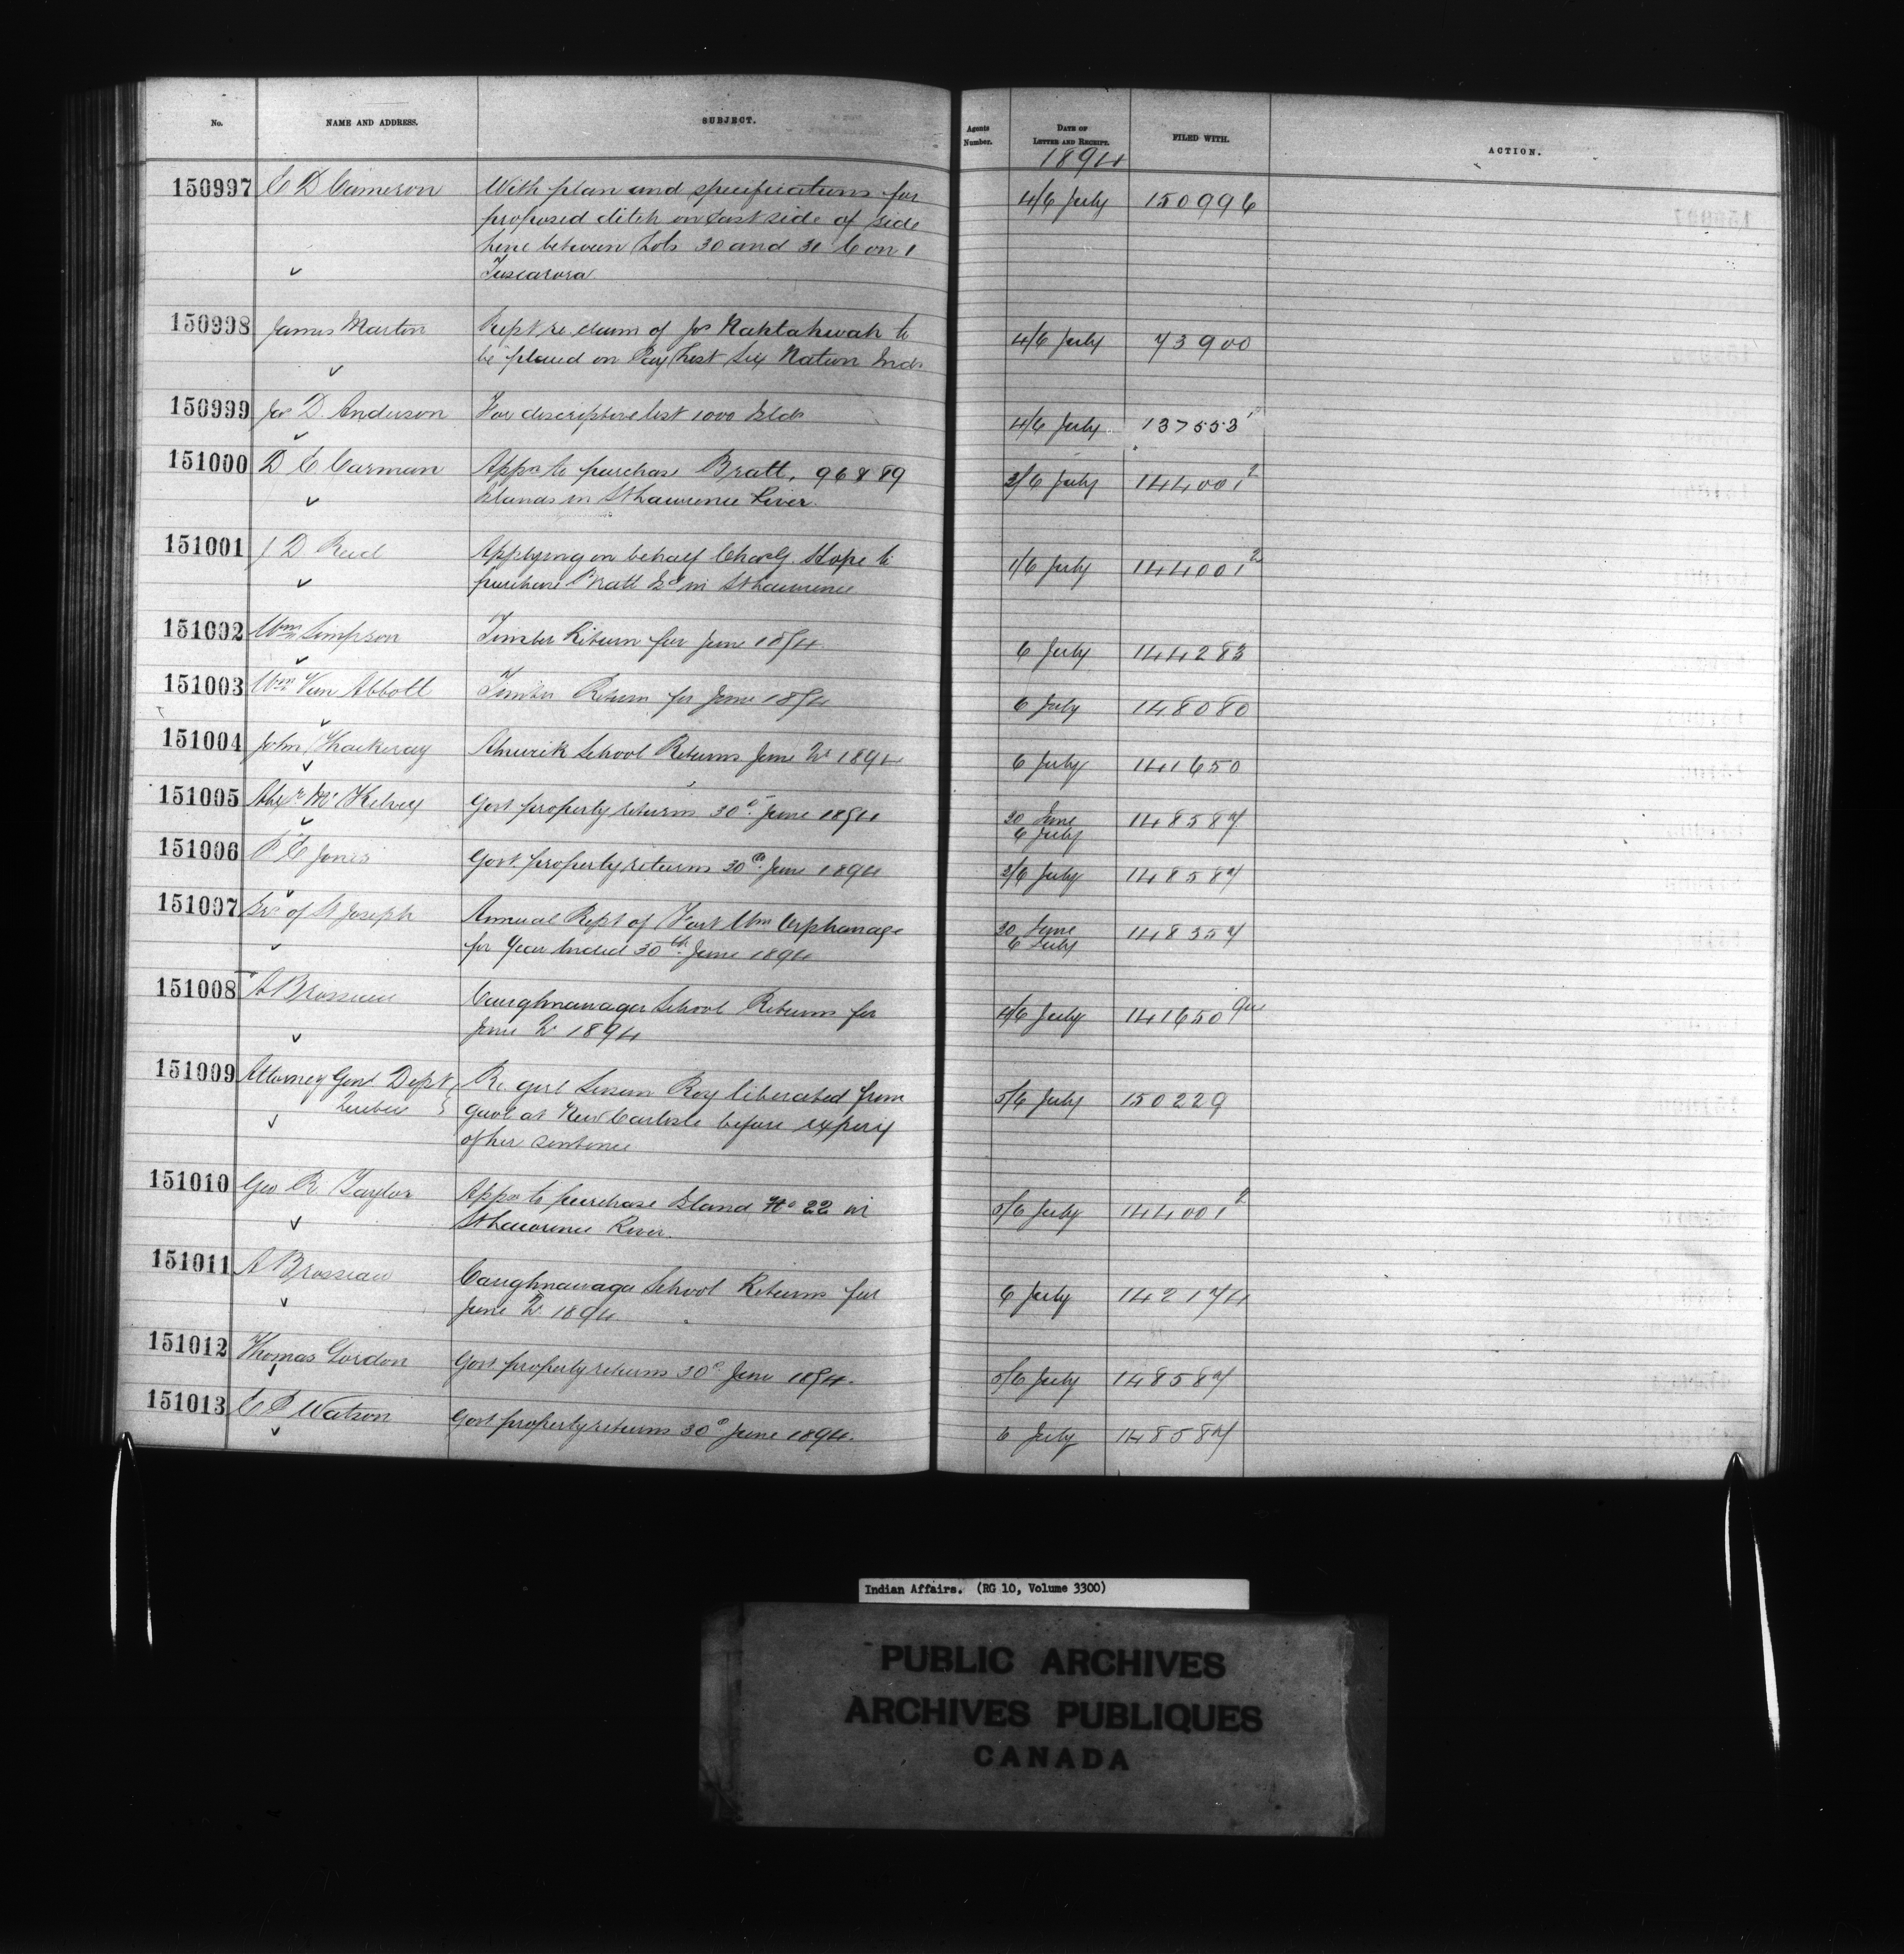 No.	NAME AND ADDRESS.	SUBJECT.	Agents Number.	DATE OF LETTER AND RECEIPT.	FILED WITH.	ACTION.
1894
150997 C D Cameron	With plan and specifications for	4/6 July	150996
proposed ditch on East side of side
line between Lots 30 and 31 Con 1
Tuscarora
150998 James Martin	Rept re claim of Jos Nahtahwah to	4/6 July	73900
be placed on Pay List Six Nation Inds
150999 Jos D. Anderson	For descriptive list 1000 Islds	4/6 July	137553
151000 D E Carman	Appn to purchase Bratt, 96 & 89	3/6 July	144001²
Islands in St Lawrence River.
151001 J D Reid	Applying on behalf Chas G. Hope to	1/6 July	144001²
purchase Bratt Isd in St Lawrence
151002 Wm Simpson	Timber Return for June 1894.	6 July	144283
151003 Wm Van Abbott	Timber Return for June 1894	6 July	148080
151004 John Thackeray	Alnwick School Returns June Qr 1894	6 July	141650
151005 Alexr McKelvey	Govt property returns 30th June 1894	30 June
6 July	148587
151006 P E Jones	Govt property returns 30th June 1894	3/6 July	148587
151007 Srs of St Joseph	Annual Rept of Fort Wm Orphanage	30 June
6 July	148357
for Year Ended 30th June 1894
151008 A Brosseau	Caughnawaga School Returns for	4/6 July	141650 Que
June Qr 1894
151009 Attorney Genl Dept	Re girl Susan Roy liberated from	5/6 July	150229
Quebec	gaol at New Carlisle before expiry
of her sentence
151010 Geo R Taylor	Appn to purchase Island No 22 in	5/6 July	144001²
St Lawrence River.
151011 A Brosseau	Caughnawaga School Returns for	6 July	142174
June Qr 1894.
151012 Thomas Gordon	Govt property returns 30th June 1894.	5/6 July	148587
151013 C P Watson	Govt property returns 30th June 1894.	6 July	148587
Indian Affairs. (RG 10, Volume 3300)
PUBLIC ARCHIVES
ARCHIVES PUBLIQUES
CANADA